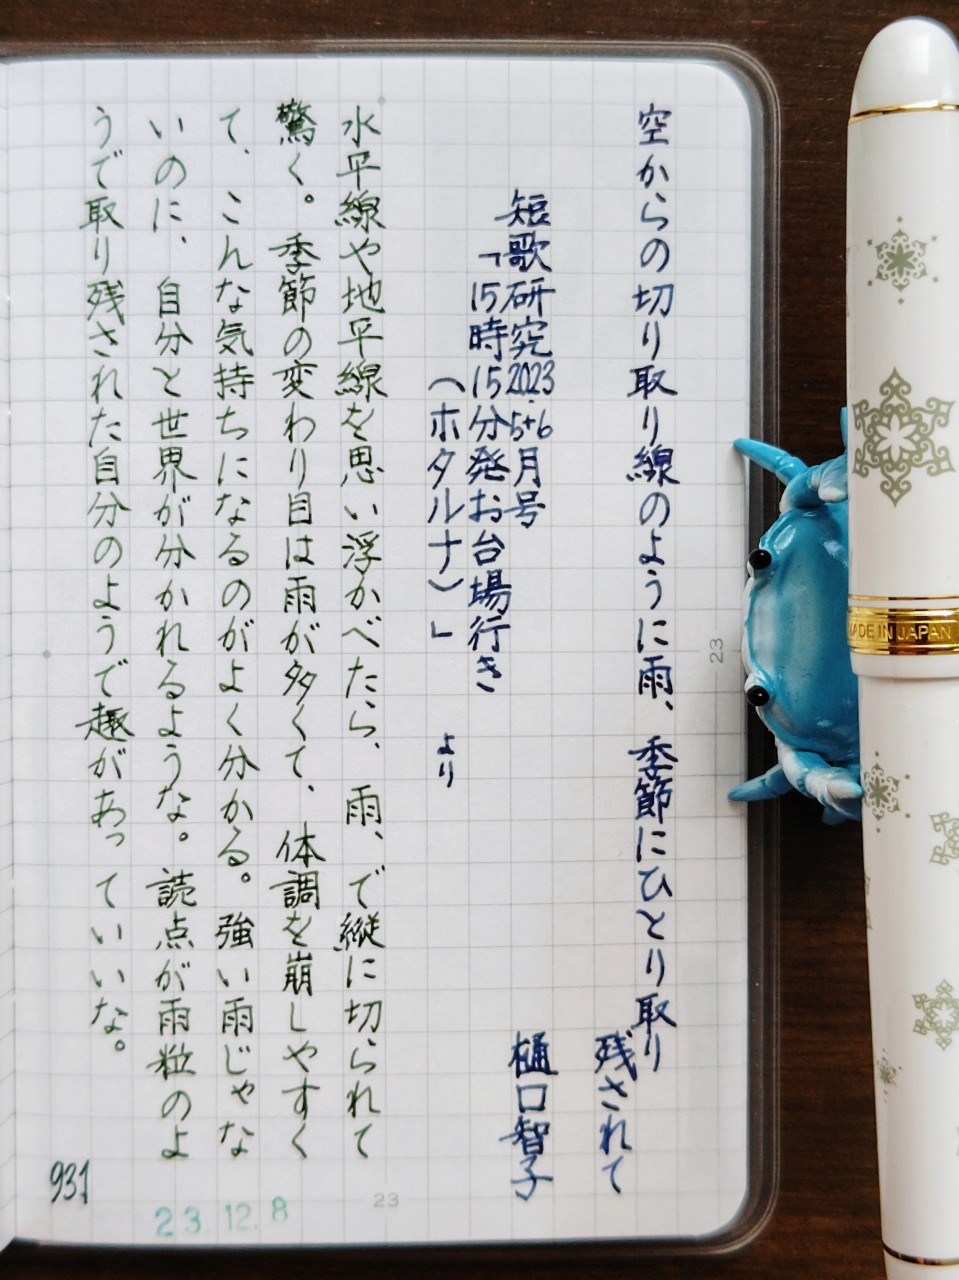 空からの切り取り線のように雨、季節にひとり取り
残されて
樋口智子
短歌研究2023.5+6月号
「15時15分発お台場行き
(ホタルナ)」 より
水平線や地平線を思い浮かべたら、雨、で縦に切られて
驚く。季節の変わり目は雨が多くて、体調を崩しやすく
て、こんな気持ちになるのがよく分かる。強い雨じゃな
いのに、自分と世界が分かれるような。読点が雨粒のよ
うで取り残された自分のようで趣があっていいな。
931
23.12.8
23
23
MADE IN JAPAN